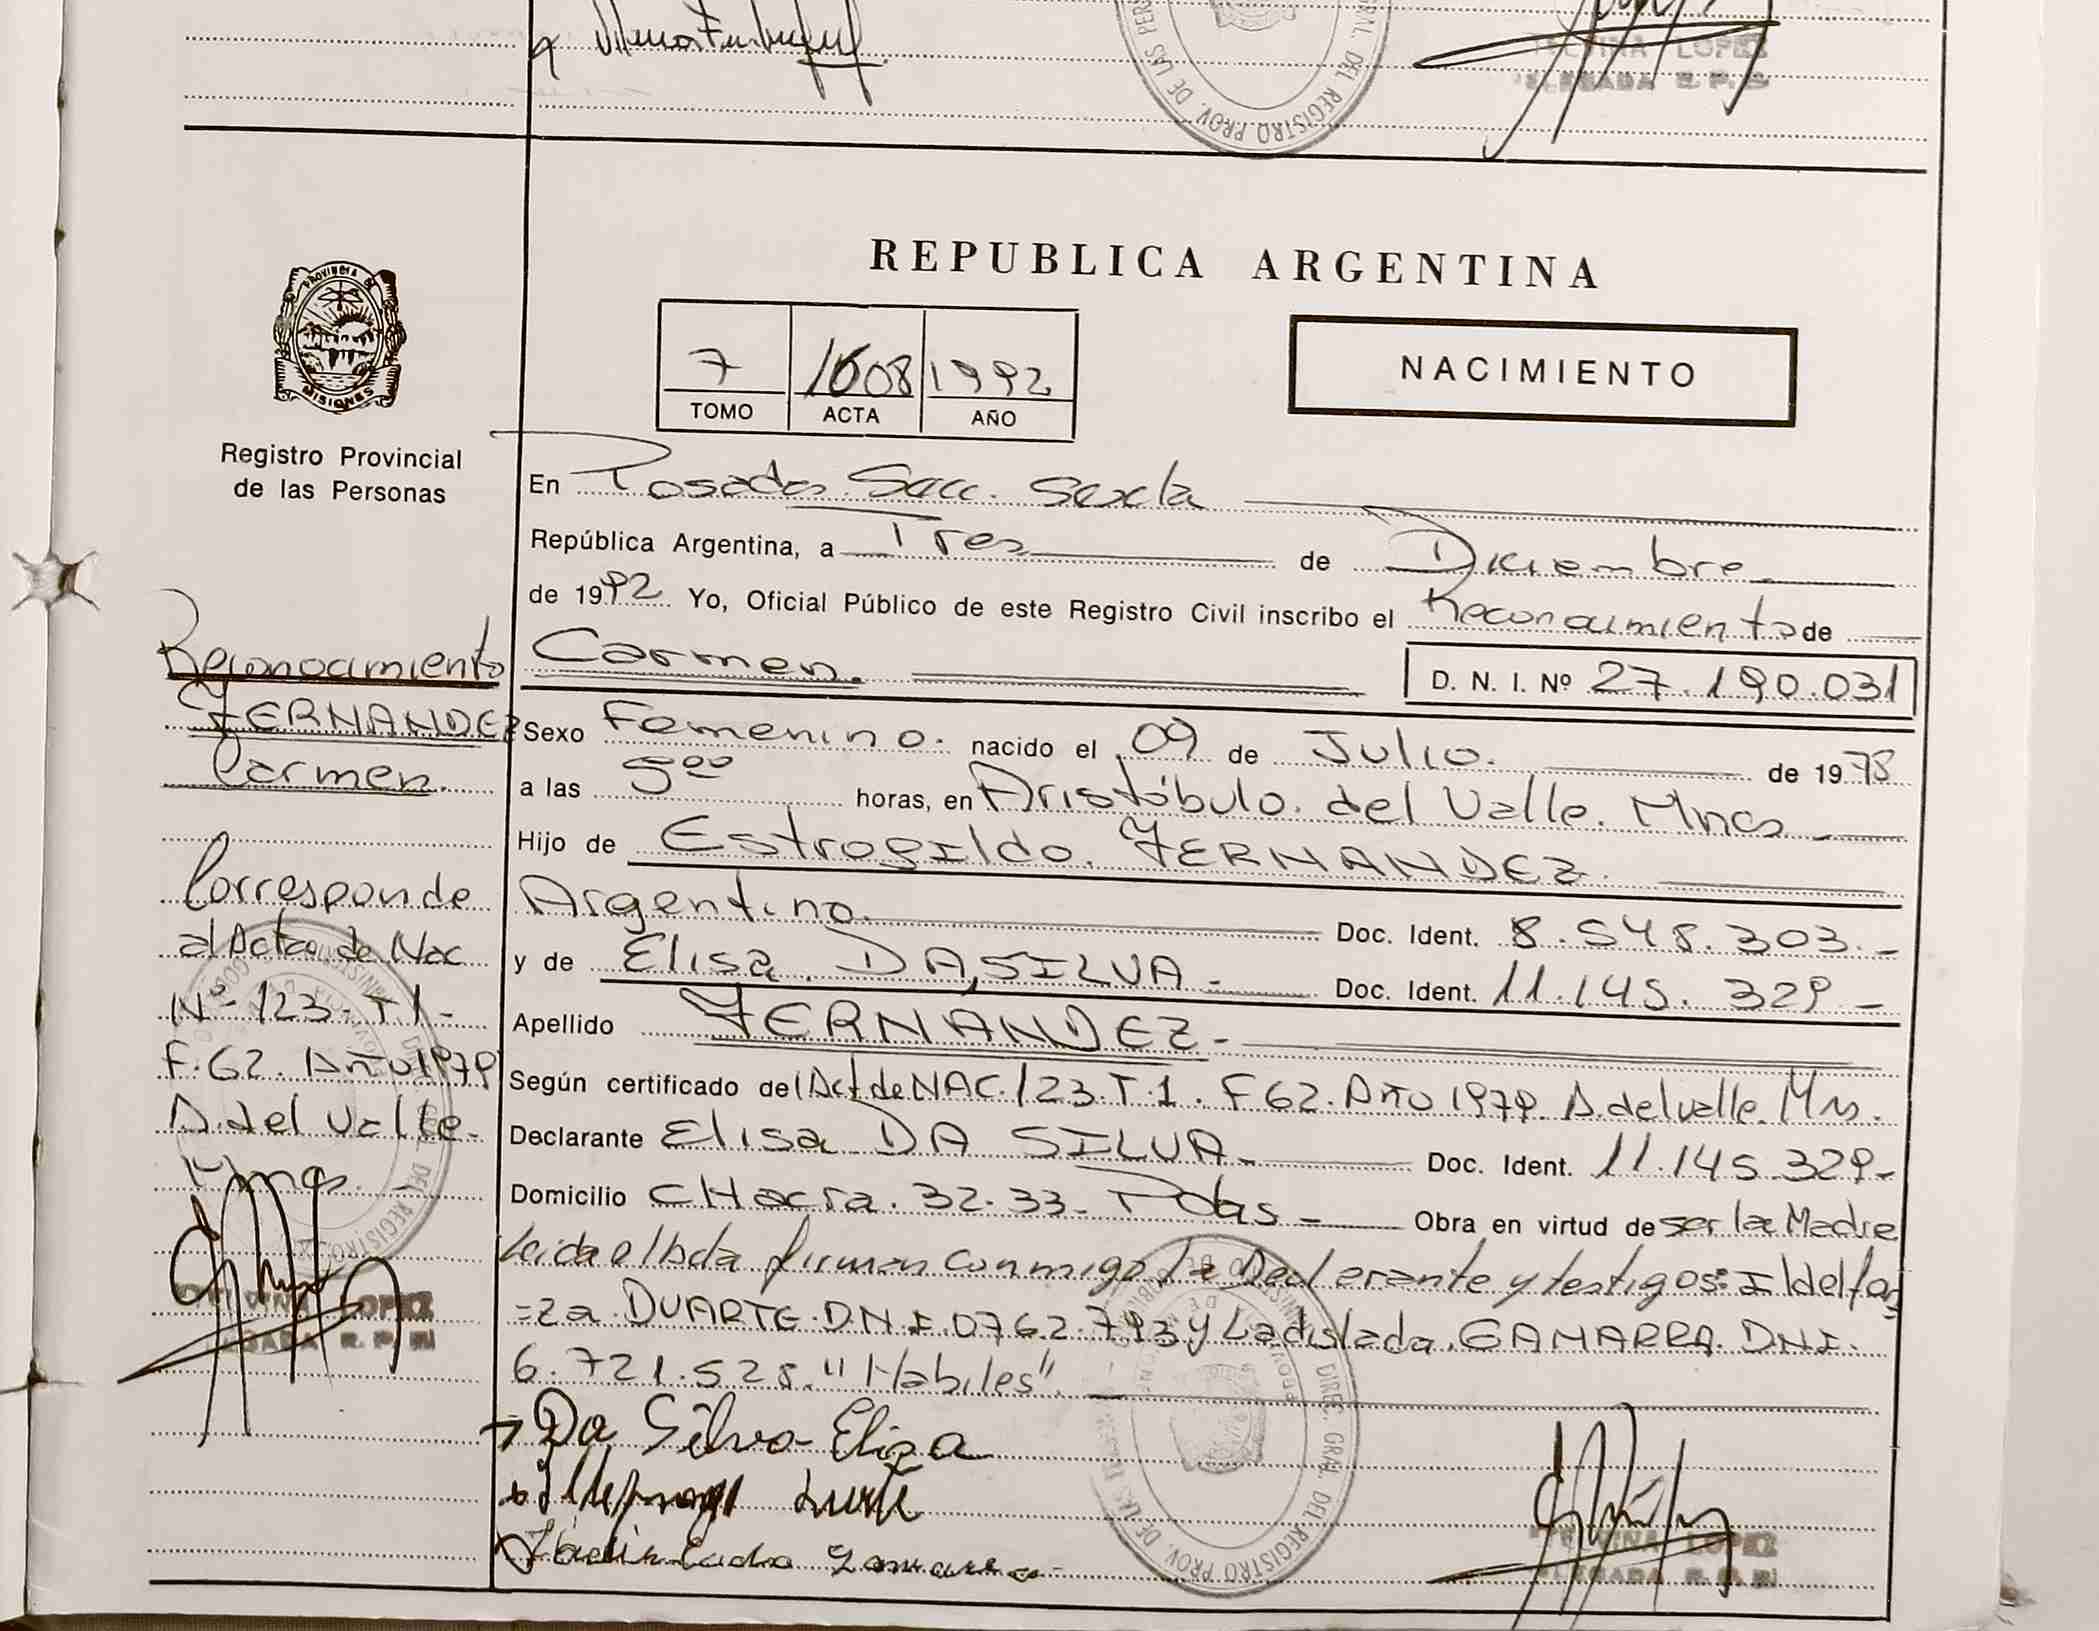 TELVINA LOPEZ
DELEGADA R. P. P.
REGISTRO PROV. DE LAS
REPUBLICA ARGENTINA
PROVINCIA DE
MISIONES
7 1608 1992
TOMO ACTA AÑO
NACIMIENTO
Registro Provincial
de las Personas
En Posadas Secc. Sexta
República Argentina, a Tres de Diciembre
de 1992 Yo, Oficial Público de este Registro Civil inscribo el Reconocimiento de
Carmen. D. N. I. Nº 27.190.031
Sexo Femenino. nacido el 09 de Julio. de 1978
a las 5⁰⁰ horas, en Aristóbulo del Valle. Mnes
Hijo de Estrogildo. FERNANDEZ.
Argentino. Doc. Ident. 8.548.303.-
y de Elisa DA SILVA.- Doc. Ident. 11.145.329-
Apellido FERNANDEZ-
Según certificado del Act de NAC. 123.T.1. F62. Año 1979. A. del valle. Mns.
Declarante Elisa DA SILVA.- Doc. Ident. 11.145.329-
Domicilio CHacra. 32-33- Pdas- Obra en virtud de ser la Madre
Leida el Acta firman conmigo la Declarante y testigos: Ildefon
=za DUARTE. D.N.I. 0762.793 y Ladislada. GAMARRA. DNI.
6.721.528. "Habiles".
Da Silva Eliza
Reconocimiento
FERNANDEZ
Carmen.
Corresponde
al Acta de Nac
Nº 123- T1-
F. 62. Año 1979
A. del Valle.
Mnes.
TELVINA LOPEZ
DELEGADA R. P. P.
DIREC. GRAL. DEL REGISTRO PROV. DE LAS
TELVINA LOPEZ
DELEGADA R. P. P.